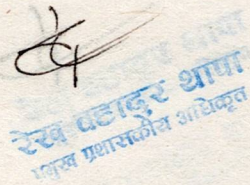 रेख बहादुर थापा
प्रमुख प्रशासकीय अधिकृत